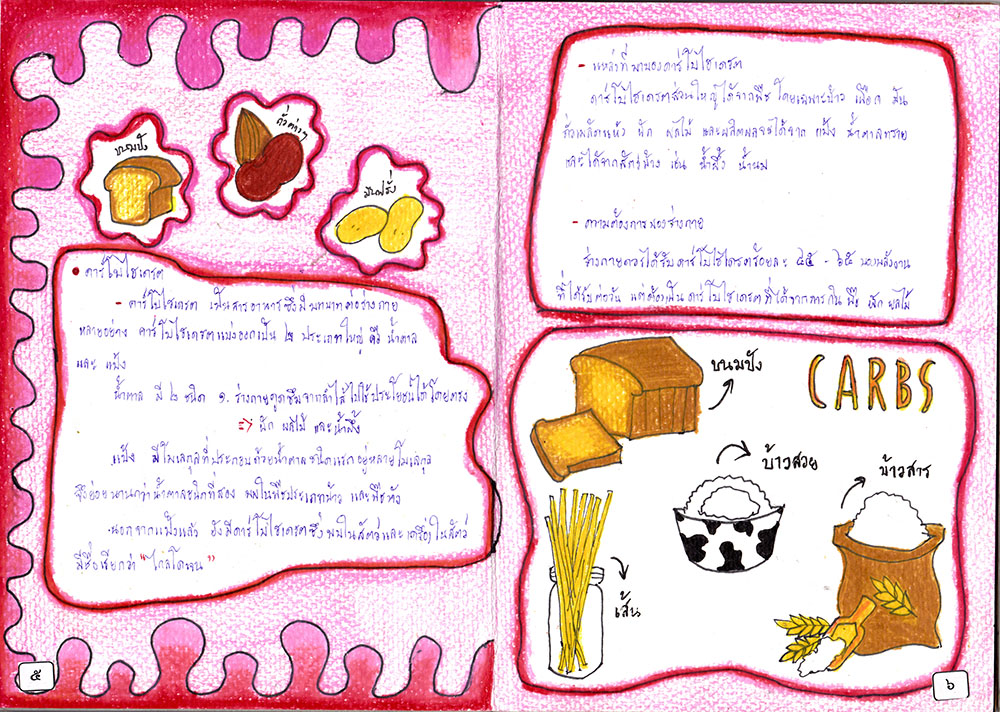 ขนมปัง
ถั่วต่างๆ
มันฝรั่ง
• คาร์โบไฮเดรต
- คาร์โบไฮเดรต เป็นสารอาหารซึ่งมีบทบาทต่อร่างกาย
หลายอย่าง คาร์โบไฮเดรตแบ่งออกเป็น ๒ ประเภทใหญ่ คือ น้ำตาล
และ แป้ง
น้ำตาล มี ๒ ชนิด ๑. ร่างกายดูดซึมจากลำไส้ไปใช้ประโยชน์ได้โดยตรง
=> ผัก ผลไม้ และน้ำผึ้ง
แป้ง มีโมเลกุลที่ประกอบด้วยน้ำตาลชนิดแรกอยู่หลายโมเลกุล
จึงย่อยนานกว่าน้ำตาลชนิดที่สอง พบในพืชประเภทข้าว และพืชหัว
นอกจากแป้งแล้ว ยังมีคาร์โบไฮเดรตซึ่งพบในสัตว์และเครื่องในสัตว์
มีชื่อเรียกว่า "ไกลโคเจน"
๕
- แหล่งที่มาของคาร์โบไฮเดรต
คาร์โบไฮเดรตส่วนใหญ่ได้จากพืช โดยเฉพาะข้าว เผือก มัน
ถั่วเมล็ดแห้ง ผัก ผลไม้ และผลิตผลจำได้จาก แป้ง น้ำตาลทราย
และได้จากสัตว์บ้าง เช่น น้ำผึ้ง น้ำนม
- ความต้องการของร่างกาย
ร่างกายควรได้รับคาร์โบไฮเดรตร้อยละ ๔๕ - ๖๕ ของพลังงาน
ที่ได้รับต่อวัน แต่ต้องเป็นคาร์โบไฮเดรตที่ได้จากสารใน พืช ผัก ผลไม้
ขนมปัง
CARBS
ข้าวสวย
ข้าวสาร
เส้น
๖